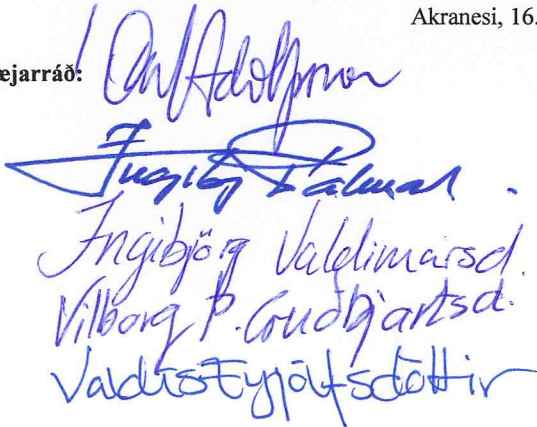 Akranesi, 16.
æjarráð:
Adolfsson
Ingibj. Pálmad.
Ingibjörg Valdimarsd.
Vilborg Þ. Guðbjartsd.
Valdís Eyjólfsdóttir